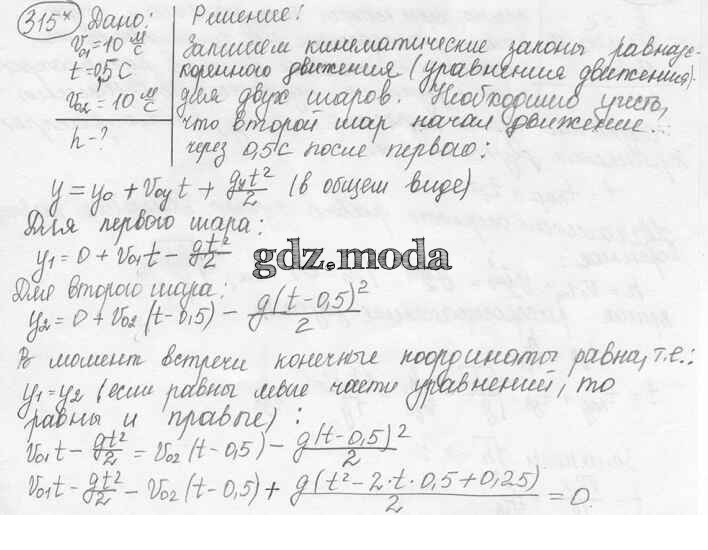 315* Дано: Решение:
V₀₁=10 м/с Записшем кинематические законы равноус-
t=0,5 с коренного движения (уравнения движения)
V₀₂=10 м/с для двух шаров. Необходимо учесть,
h-? что второй шар начал движение
через 0,5 с после первого:
y = y₀ + V₀yt + gyt²/2 (в общем виде)
Для первого шара:
y₁ = 0 + V₀₁t - gt²/2
gdz.moda
Для второго шара:
y₂ = 0 + V₀₂ (t-0,5) - g(t-0,5)²/2
В момент встречи конечные координаты равны, т.е.:
y₁=y₂ (если равны левые части уравнений, то
равны и правые):
V₀₁t - gt²/2 = V₀₂ (t-0,5) - g(t-0,5)²/2
V₀₁t - gt²/2 - V₀₂ (t-0,5) + g(t²-2·t·0,5+0,25)/2 = 0.